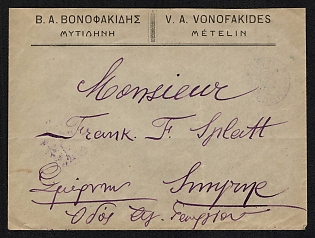 Β. Α. ΒΟΝΟΦΑΚΙΔΗΣ V. A. VONOFAKIDES
ΜΥΤΙΛΗΝΗ MÉTELIN
Monsieur
Frank. F. Splatt
Σμύρνην Smyrne
Οδός Αγ. Γεωργίου